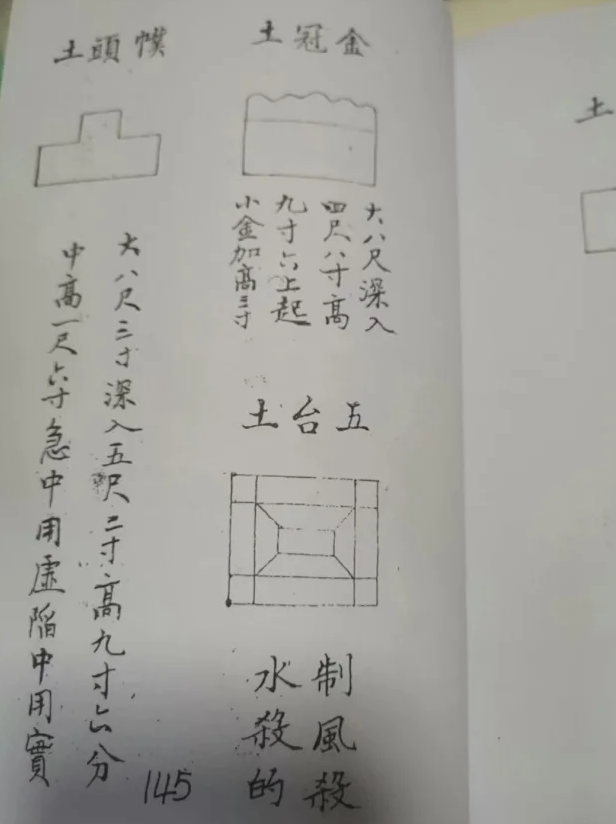 金冠土
大八尺深入
四尺八寸高
九寸六上起
小金加高三寸
五台土
制風殺
水殺的
幞頭土
大八尺三寸深入五尺二寸高九寸六分
中高一尺六寸急中用虛陷中用實
145
土